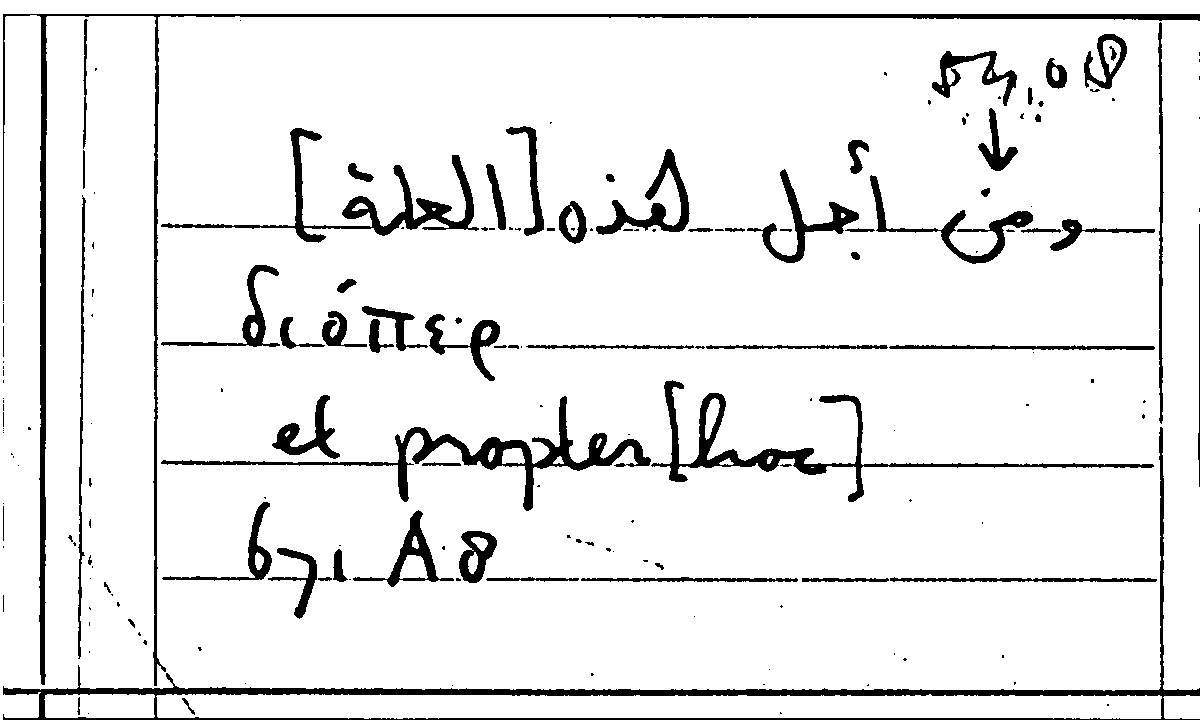 ومن أجل هذه [العلة]
διόπερ
et propter [hoc]
671 A 8